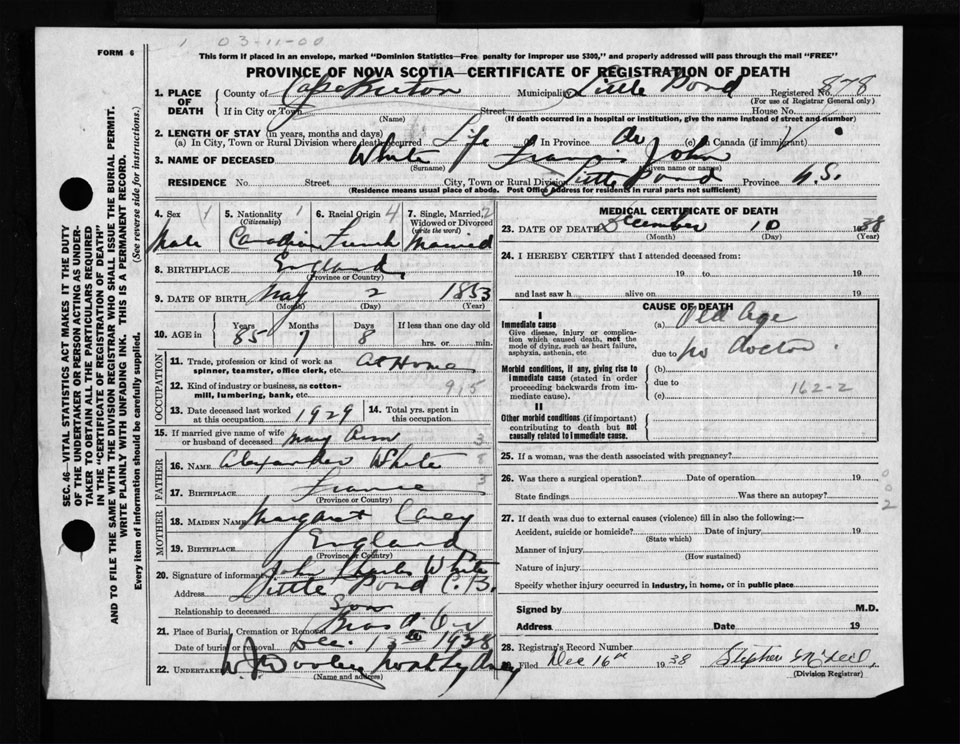 1 03-11-00
FORM 6
This form if placed in an envelope, marked "Dominion Statistics—Free penalty for improper use $300," and properly addressed will pass through the mail "FREE"
PROVINCE OF NOVA SCOTIA—CERTIFICATE OF REGISTRATION OF DEATH
1. PLACE OF DEATH
County of Cape Breton Municipality Little Pond Registered No. 878
(For use of Registrar General only)
If in City or Town Street House No.
(Name) (If death occurred in a hospital or institution, give the name instead of street and number)
2. LENGTH OF STAY (in years, months and days)
(a) In City, Town or Rural Division where death occurred Life In Province do (c) In Canada (if immigrant)
3. NAME OF DECEASED White Francis John
(Surname) (Given name or names)
RESIDENCE No. Street City, Town or Rural Division Little Pond Province N.S.
(Residence means usual place of abode. Post Office Address for residents in rural parts not sufficient)
4. Sex 1 5. Nationality 1 6. Racial Origin 4 7. Single, Married, 2
(Citizenship) Widowed or Divorced
(write the word)
Male Canadian French Married
8. BIRTHPLACE England
(Province or Country)
9. DATE OF BIRTH May 2 1853
(Month) (Day) (Year)
10. AGE in Years Months Days If less than one day old
85 7 8 hrs. or min.
OCCUPATION
11. Trade, profession or kind of work as At Home
spinner, teamster, office clerk, etc.
12. Kind of industry or business, as cotton- 915
mill, lumbering, bank, etc.
13. Date deceased last worked 14. Total yrs. spent in
at this occupation 1929 in this occupation
15. If married give name of wife
or husband of deceased Mary Ann 3
FATHER
16. NAME Alexander White 8
17. BIRTHPLACE France 3
(Province or Country)
MOTHER
18. MAIDEN NAME Margaret Carey
19. BIRTHPLACE England
(Province or Country)
20. Signature of informant John Charles White
Address Little Pond C.B.
Relationship to deceased Son
21. Place of Burial, Cremation or Removal Bras d'Or
Date of burial or removal Dec. 13th 1938
22. UNDERTAKER W. J. Dooley
(Name and address)
MEDICAL CERTIFICATE OF DEATH
23. DATE OF DEATH December 10 1938
(Month) (Day) (Year)
24. I HEREBY CERTIFY that I attended deceased from:
19 to 19
and last saw h alive on 19
CAUSE OF DEATH
I
Immediate cause (a) Old Age
Give disease, injury or complica-
tion which caused death, not the
mode of dying, such as heart failure,
asphyxia, asthenia, etc due to no doctor.
Morbid conditions, if any, giving rise to (b)
immediate cause (stated in order due to 162-2
proceeding backwards from im-
mediate cause). (c)
II
Other morbid conditions (if important)
contributing to death but not
causally related to immediate cause.
25. If a woman, was the death associated with pregnancy?
26. Was there a surgical operation? Date of operation 19
State findings Was there an autopsy? 002
27. If death was due to external causes (violence) fill in also the following:—
Accident, suicide or homicide? Date of injury 19
(State which)
Manner of injury
(How sustained)
Nature of injury
Specify whether injury occurred in industry, in home, or in public place
Signed by M.D.
Address Date 19
28. Registrar's Record Number
29. Filed Dec 16th 1938 Stephen McNeil
(Division Registrar)
SEC. 46—VITAL STATISTICS ACT MAKES IT THE DUTY
OF THE UNDERTAKER OR PERSON ACTING AS UNDER-
TAKER TO OBTAIN ALL THE PARTICULARS REQUIRED
IN THE "CERTIFICATE OF REGISTRATION OF DEATH"
AND TO FILE THE SAME WITH THE DIVISION REGISTRAR WHO SHALL ISSUE THE BURIAL PERMIT.
WRITE PLAINLY WITH UNFADING INK. THIS IS A PERMANENT RECORD.
Every item of information should be carefully supplied. (See reverse side for instructions.)